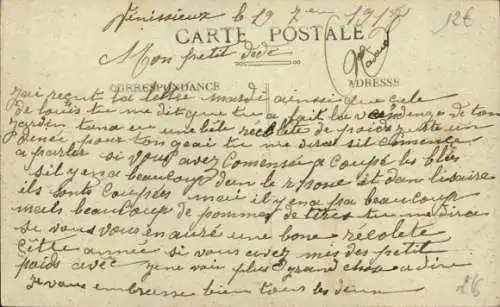 Vénissieux le 19 7er 191
12€
CARTE POSTALE
Mon petit dedé
CORRESPONDANCE
ADRESSE
J'ai reçut ta lettre mardi ainsi que cele
de louis tu me dit que tu a fait la vendenge de ton
jardin tana eu une bele récolete de poids reste un
pour ton geai tu me diras sil comence
a parler si vous avez comensé a coupé les blés
sil y en a beaucoup dan le et dan lisaire
ils sont coupées mais il y en a pa beaucoup
mais beaucoup de pommes de tères tu me dira
si vous vous en auré une bone récolete
cette année si vous avez mis des petit
poids avec je ne vois plus grand chose a dire
je vous embrasse bien tous les deux